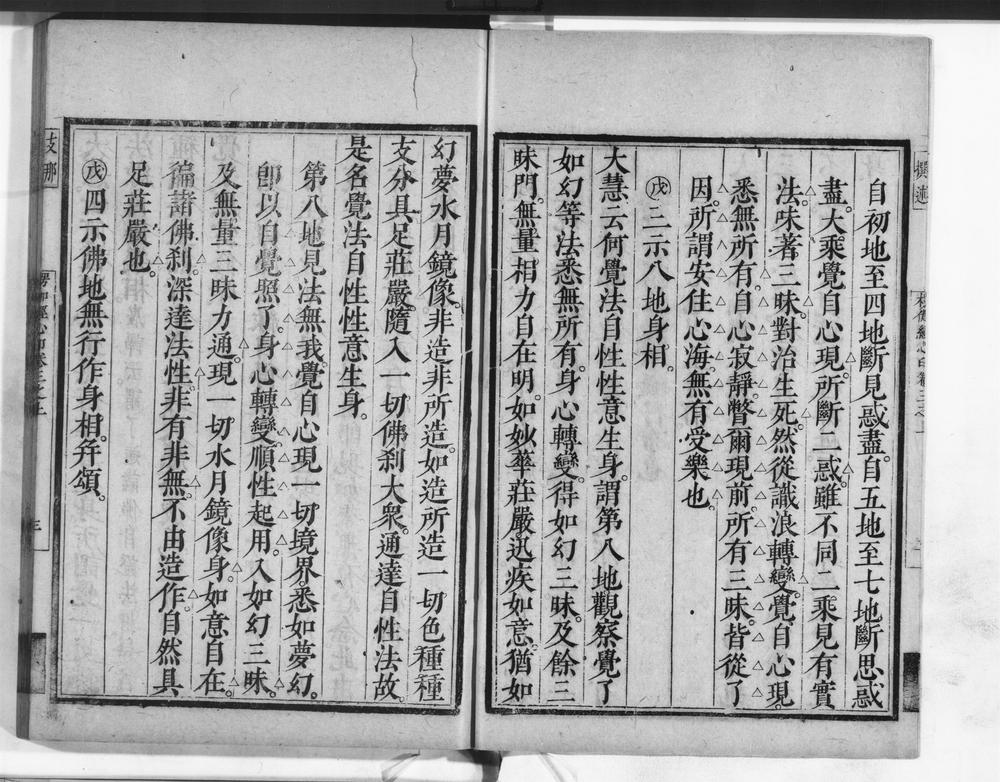 自初地至四地斷見惑盡。自五地至七地斷思惑
盡。大乘覺自心現。所斷二惑雖不同二乘見有實
法。味著三昧。對治生死。然從識浪轉變。覺自心現。
悉無所有。自心寂靜。瞥爾現前。所有三昧。皆從了
因。所謂安住心海。無有受樂也。
戊三示八地身相。
大慧。云何覺法自性性意生身。謂第八地觀察覺了
如幻等法悉無所有。身心轉變。得如幻三昧。及餘三
昧門。無量相力自在明。如妙華莊嚴。迅疾如意。猶如
幻夢水月鏡像。非造非所造。如造所造。一切色種種
支分具足莊嚴。隨入一切佛剎大衆。通達自性法故。
是名覺法自性性意生身。
第八地見法無我。覺自心現一切境界。悉如夢幻。
即以自覺照了。身心轉變。順性起用。入如幻三昧。
及無量三昧力通。現一切水月鏡像身。如意自在。
徧諸佛剎。深達法性。非有非無。不由造作。自然具
足莊嚴也。
戊四示佛地無行作身相。幷頌。
支那
三
撰述